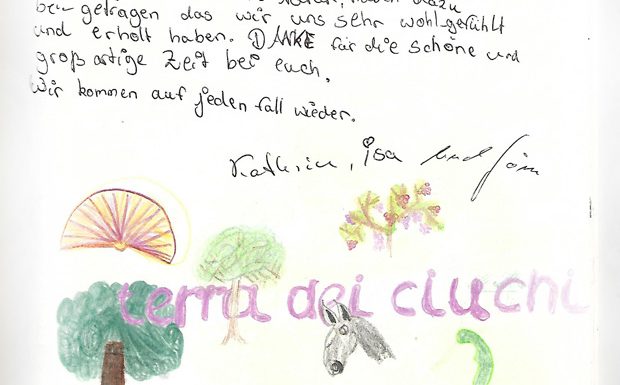 beigetragen das wir uns sehr wohlgefühlt
und erholt haben. DANKE für die schöne und
großartige Zeit bei euch.
Wir kommen auf jeden fall wieder.
Kathrin, Isa und Jörn
terra dei ciuchi